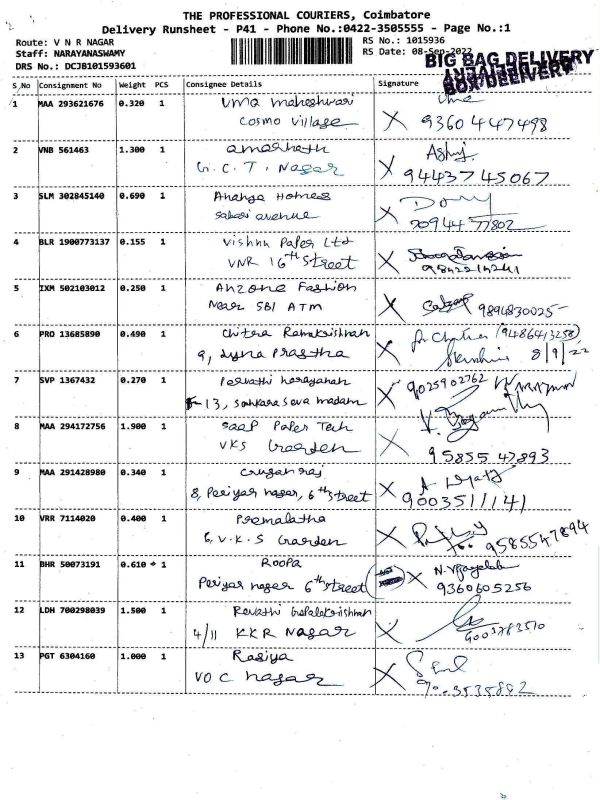 THE PROFESSIONAL COURIERS, Coimbatore
Delivery Runsheet - P41 - Phone No.:0422-3505555 - Page No.:1
Route: V N R NAGAR
RS No.: 1015936
Staff: NARAYANASWAMY
RS Date: 08-Sep-2022
DRS No.: DCJB101593601
BIG BAG DELIVERY
BOX DELIVERY
S_No Consignment No Weight PCS Consignee Details Signature
1 MAA 293621676 0.320 1 Uma maheshwari
Cosmo Village X 9360447498
2 VNB 561463 1.300 1 amarnath
G.C.T. Nagar X 9443745067
3 SLM 302845140 0.690 1 Ananya Homes
sabari avenue X
4 BLR 1900773137 0.155 1 Vishnu Paper Ltd
VNR 16th Street X
5 IXM 502103012 0.250 1 Anzone Fashion
Near SBI ATM X 9894830025
6 PRO 13685890 0.490 1 Chitra Ramakrishnan (9486413258)
9, Prastha X 8/9/22
7 SVP 1367432 0.270 1 Parvathi narayanan X 9025902762
F-13, Sankara Seva madam
8 MAA 294172756 1.900 1 Paper Tech
VKS Garden X 95855 47893
9 MAA 291428980 0.340 1
8, Periyar nagar, 6th street X 9003511141
10 VRR 7114020 0.400 1 Premalatha
6, V.K.S Garden X 9585547894
11 BHR 50073191 0.610 1 Roopa
Periyar nagar 6th street X 9360605256
12 LDH 700298039 1.500 1 Revathi Gopalakrishnan
4/11 KKR Nagar X
13 PGT 6304160 1.000 1 Rasiya
VOC nagar X